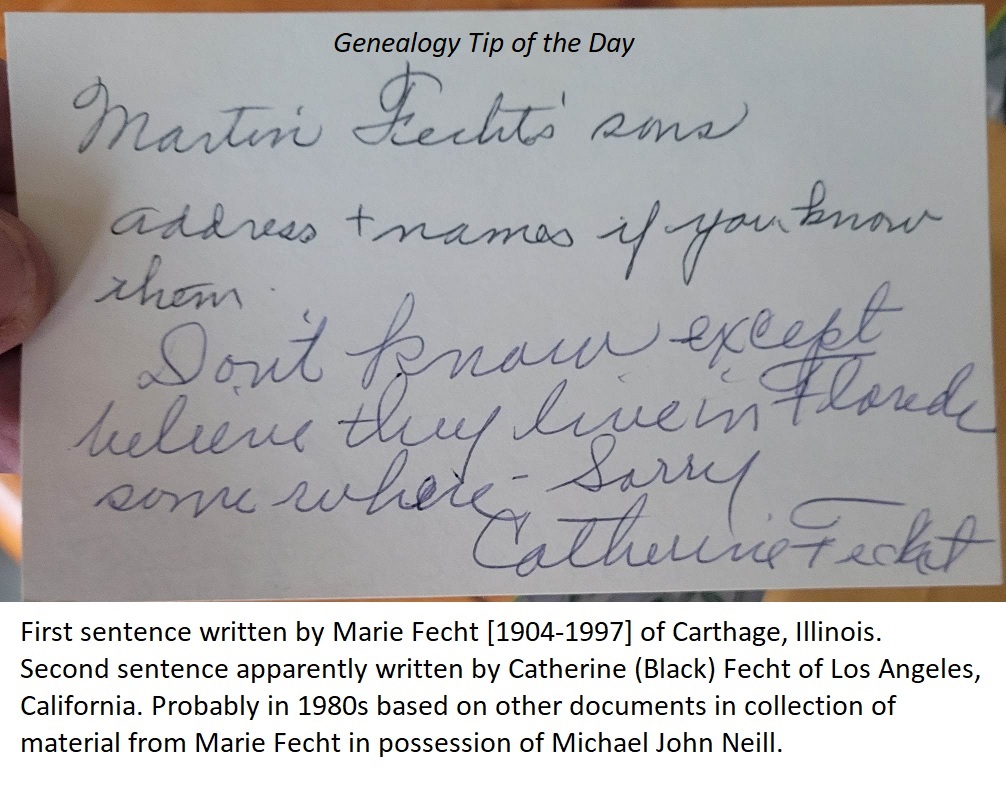 Genealogy Tip of the Day
Martin Fecht's sons
address + names if you know
them
Don't know except
believe they live in Florida
some where - Sorry
Catherine Fecht
First sentence written by Marie Fecht [1904-1997] of Carthage, Illinois.
Second sentence apparently written by Catherine (Black) Fecht of Los Angeles,
California. Probably in 1980s based on other documents in collection of
material from Marie Fecht in possession of Michael John Neill.